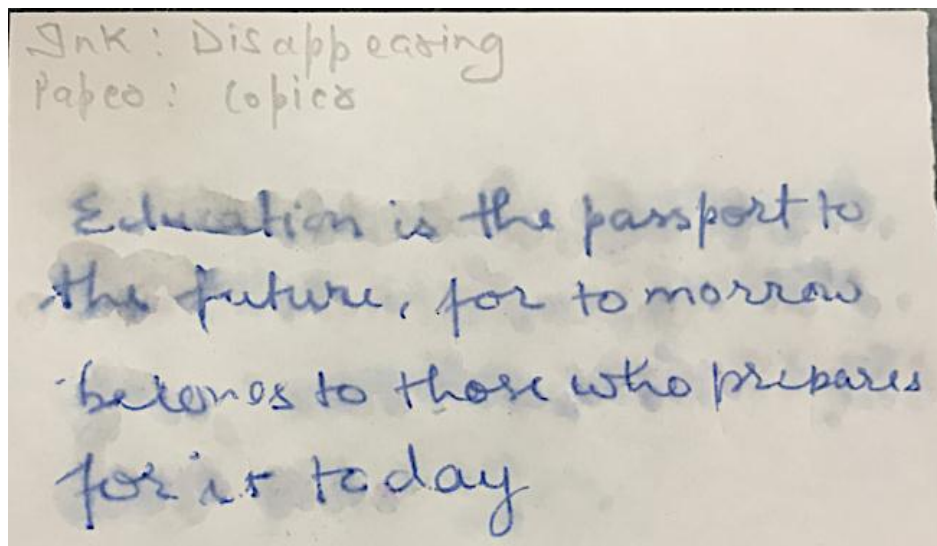 Ink: Disappearing
Paper: Copier
Education is the passport to
the future, for tomorrow
belongs to those who prepares
for it today